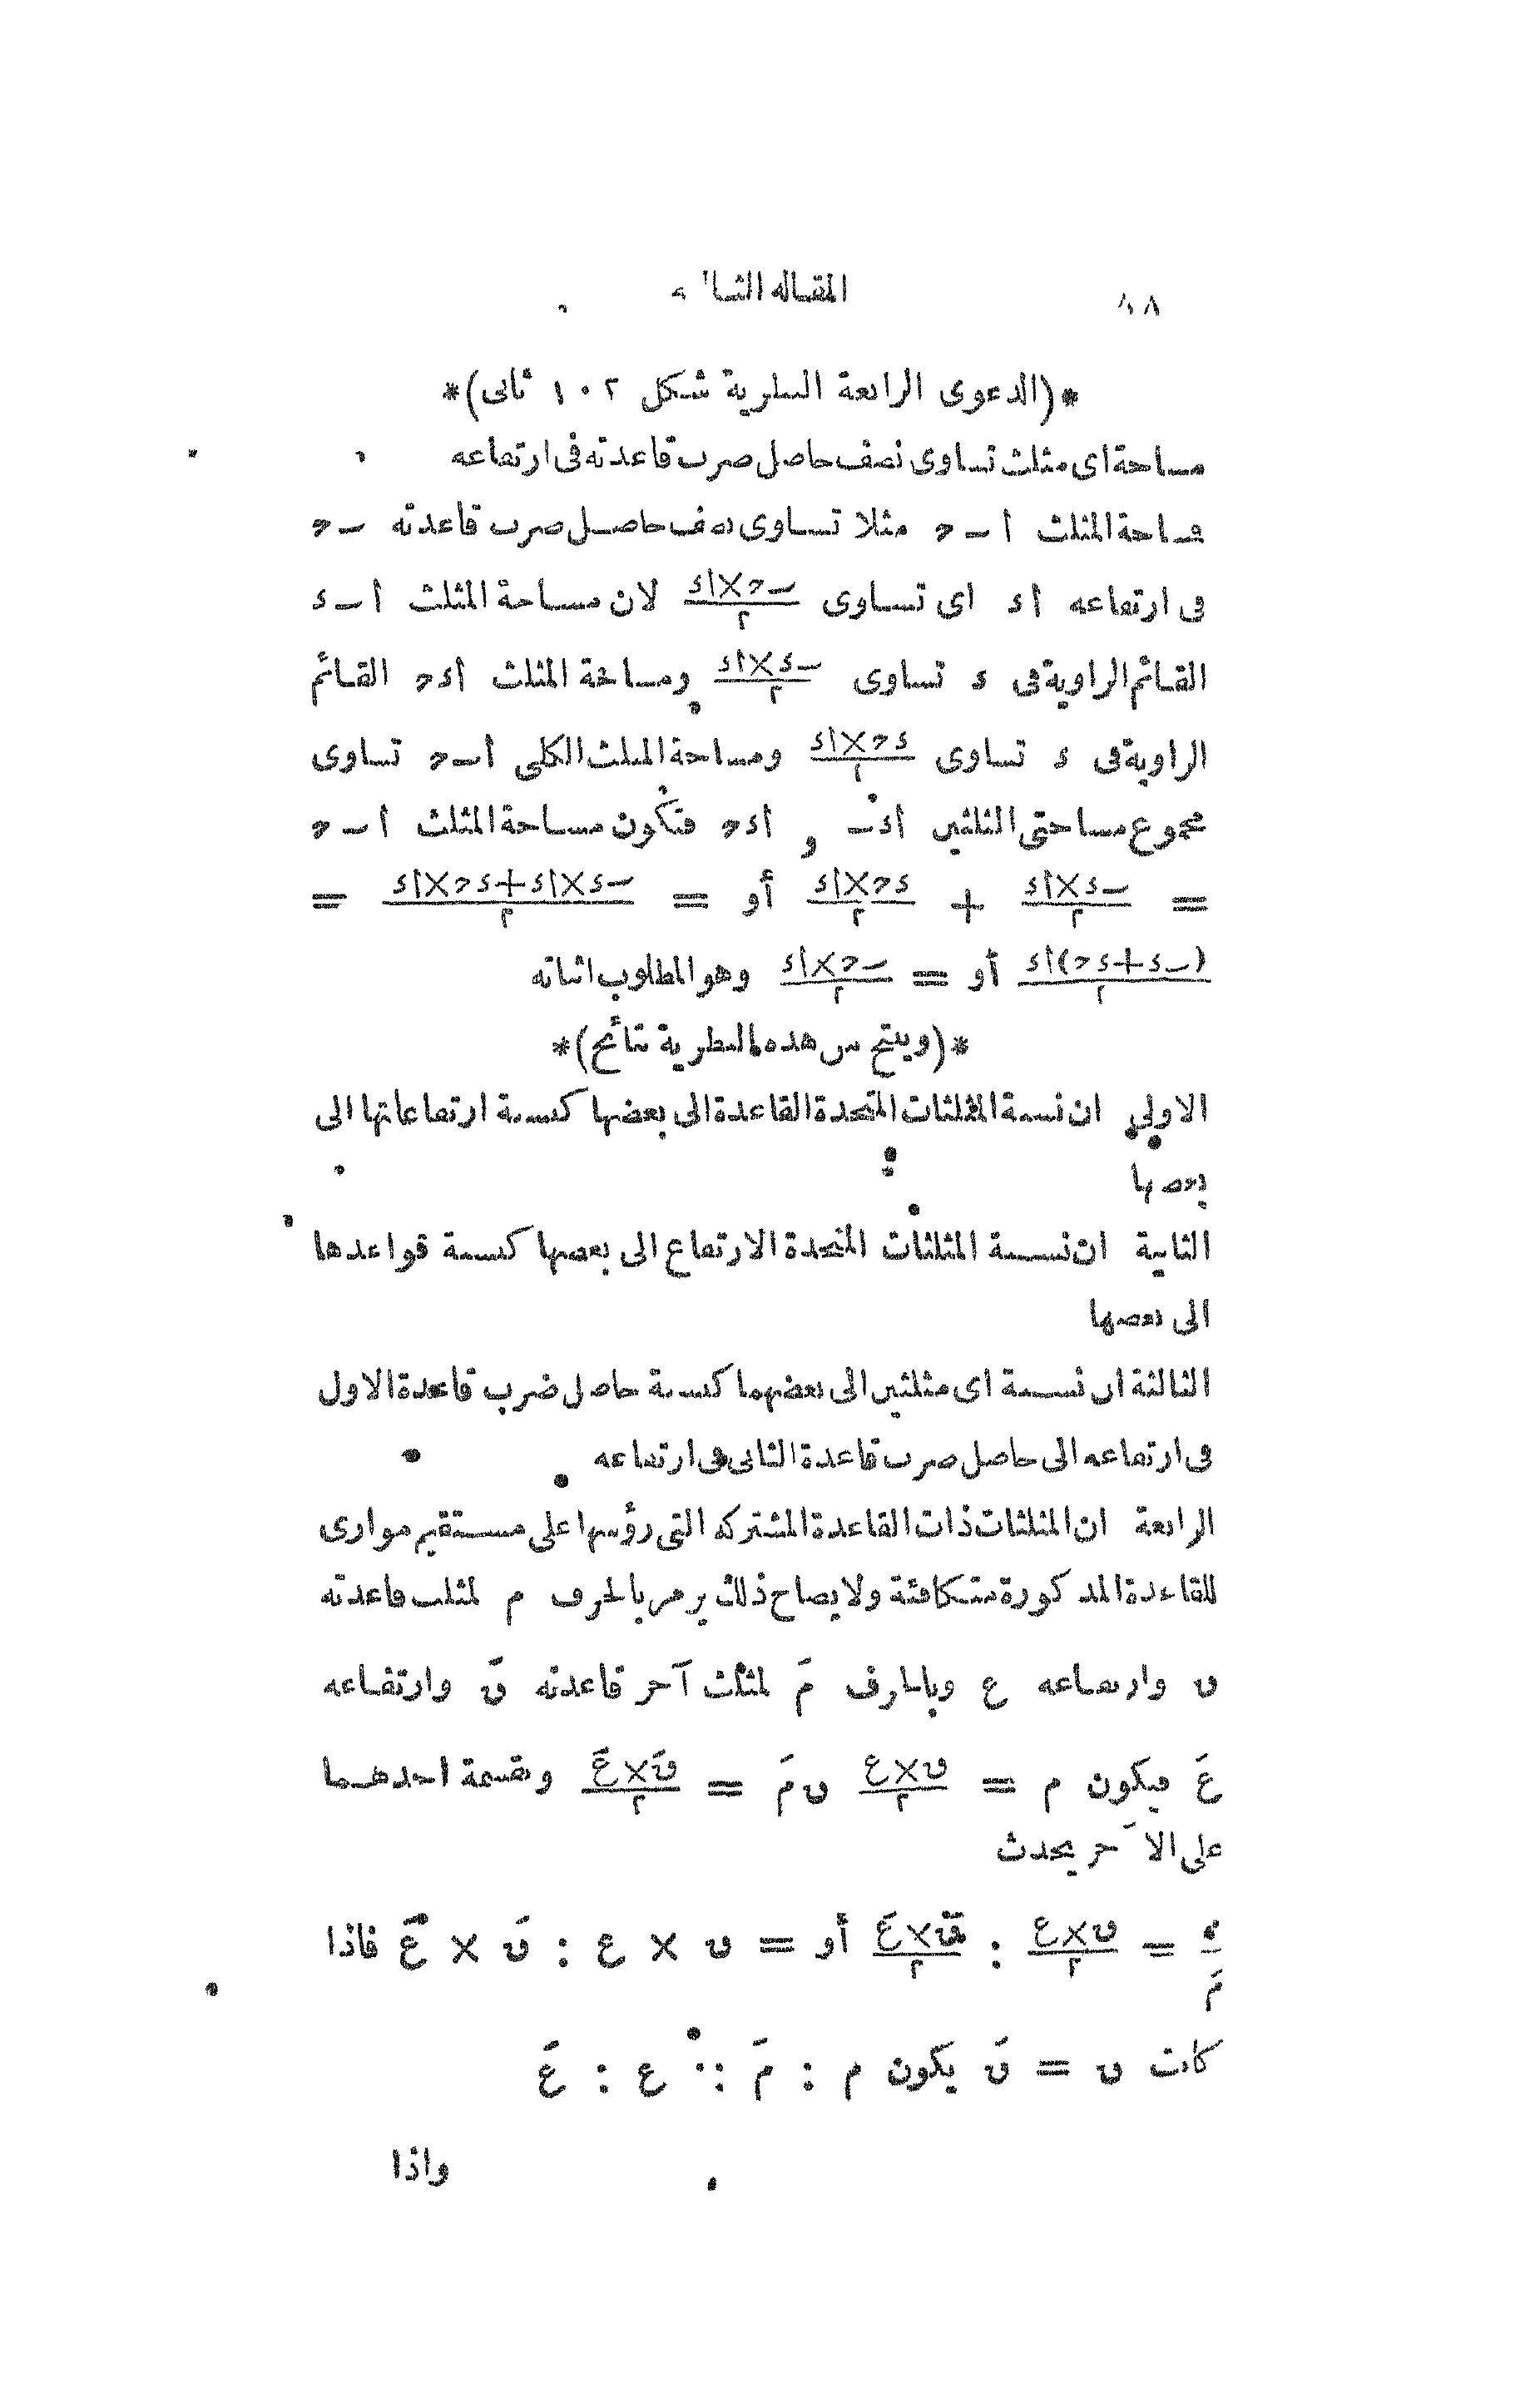 المقاله الثا
*(الدعوى الرابعة النظرية شكل ١٠٢ ثانى)*
مساحة اى مثلث تساوى نصف حاصل ضرب قاعدته فى ارتفاعه
فمساحة المثلث أ ب ح مثلا تساوى نصف حاصل ضرب قاعدته ب ح
فى ارتفاعه أ د اى تساوى ب ح × أ د / ٢ لان مساحة المثلث أ ب د
القائم الزاوية فى د تساوى ب د × أ د / ٢ ومساحة المثلث أ د ح القائم
الزاوية فى د تساوى د ح × أ د / ٢ ومساحة المثلث الكلى أ ب ح تساوى
مجموع مساحتى المثلثين أ د ب و أ د ح فتكون مساحة المثلث أ ب ح
= ب د × أ د / ٢ + د ح × أ د / ٢ أو = ب د × أ د + د ح × أ د / ٢ =
(ب د + د ح) أ د / ٢ أو = ب ح × أ د / ٢ وهو المطلوب اثباته
*(وينتج من هذه النظرية نتائج)*
الاولى ان نسبة المثلثات المتحدة القاعدة الى بعضها كنسبة ارتفاعاتها الى
بعضها
الثانية ان نسبة المثلثات المتحدة الارتفاع الى بعضها كنسبة قواعدها
الى بعضها
الثالثة ان نسبة اى مثلثين الى بعضهما كنسبة حاصل ضرب قاعدة الاول
فى ارتفاعه الى حاصل ضرب قاعدة الثانى فى ارتفاعه
الرابعة ان المثلثات ذات القاعدة المشتركه التى رؤسها على مستقيم موازى
للقاعدة المذكورة متكافئة ولايضاح ذلك يرمز بالحرف م لمثلث قاعدته
ق وارتفاعه ع وبالحرف مَ لمثلث آخر قاعدته قَ وارتفاعه
عَ فيكون م = ق × ع / ٢ و مَ = قَ × عَ / ٢ وبقسمة احدهما
على الآخر يحدث
م / مَ = ق × ع / ٢ : قَ × عَ / ٢ أو = ق × ع : قَ × عَ فاذا
كانت ق = قَ يكون م : مَ :: ع : عَ
واذا